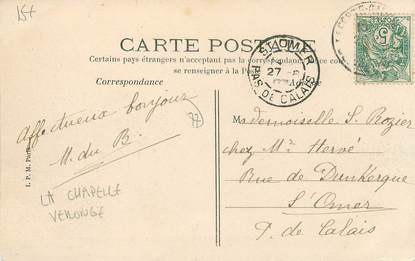 15+
CARTE POSTALE
Certains pays étrangers n'acceptent pas la correspondance
se renseigner à la
Correspondance
ST OMER
27
PAS DE CALAIS
5
Affectueux bonjour
M. du B.
77
LA CHAPELLE
VERONGE
I. P. M. Paris
Mademoiselle S. Rozier
chez Mr Hervé
Rue de Dunkerque
St Omer
P. de Calais